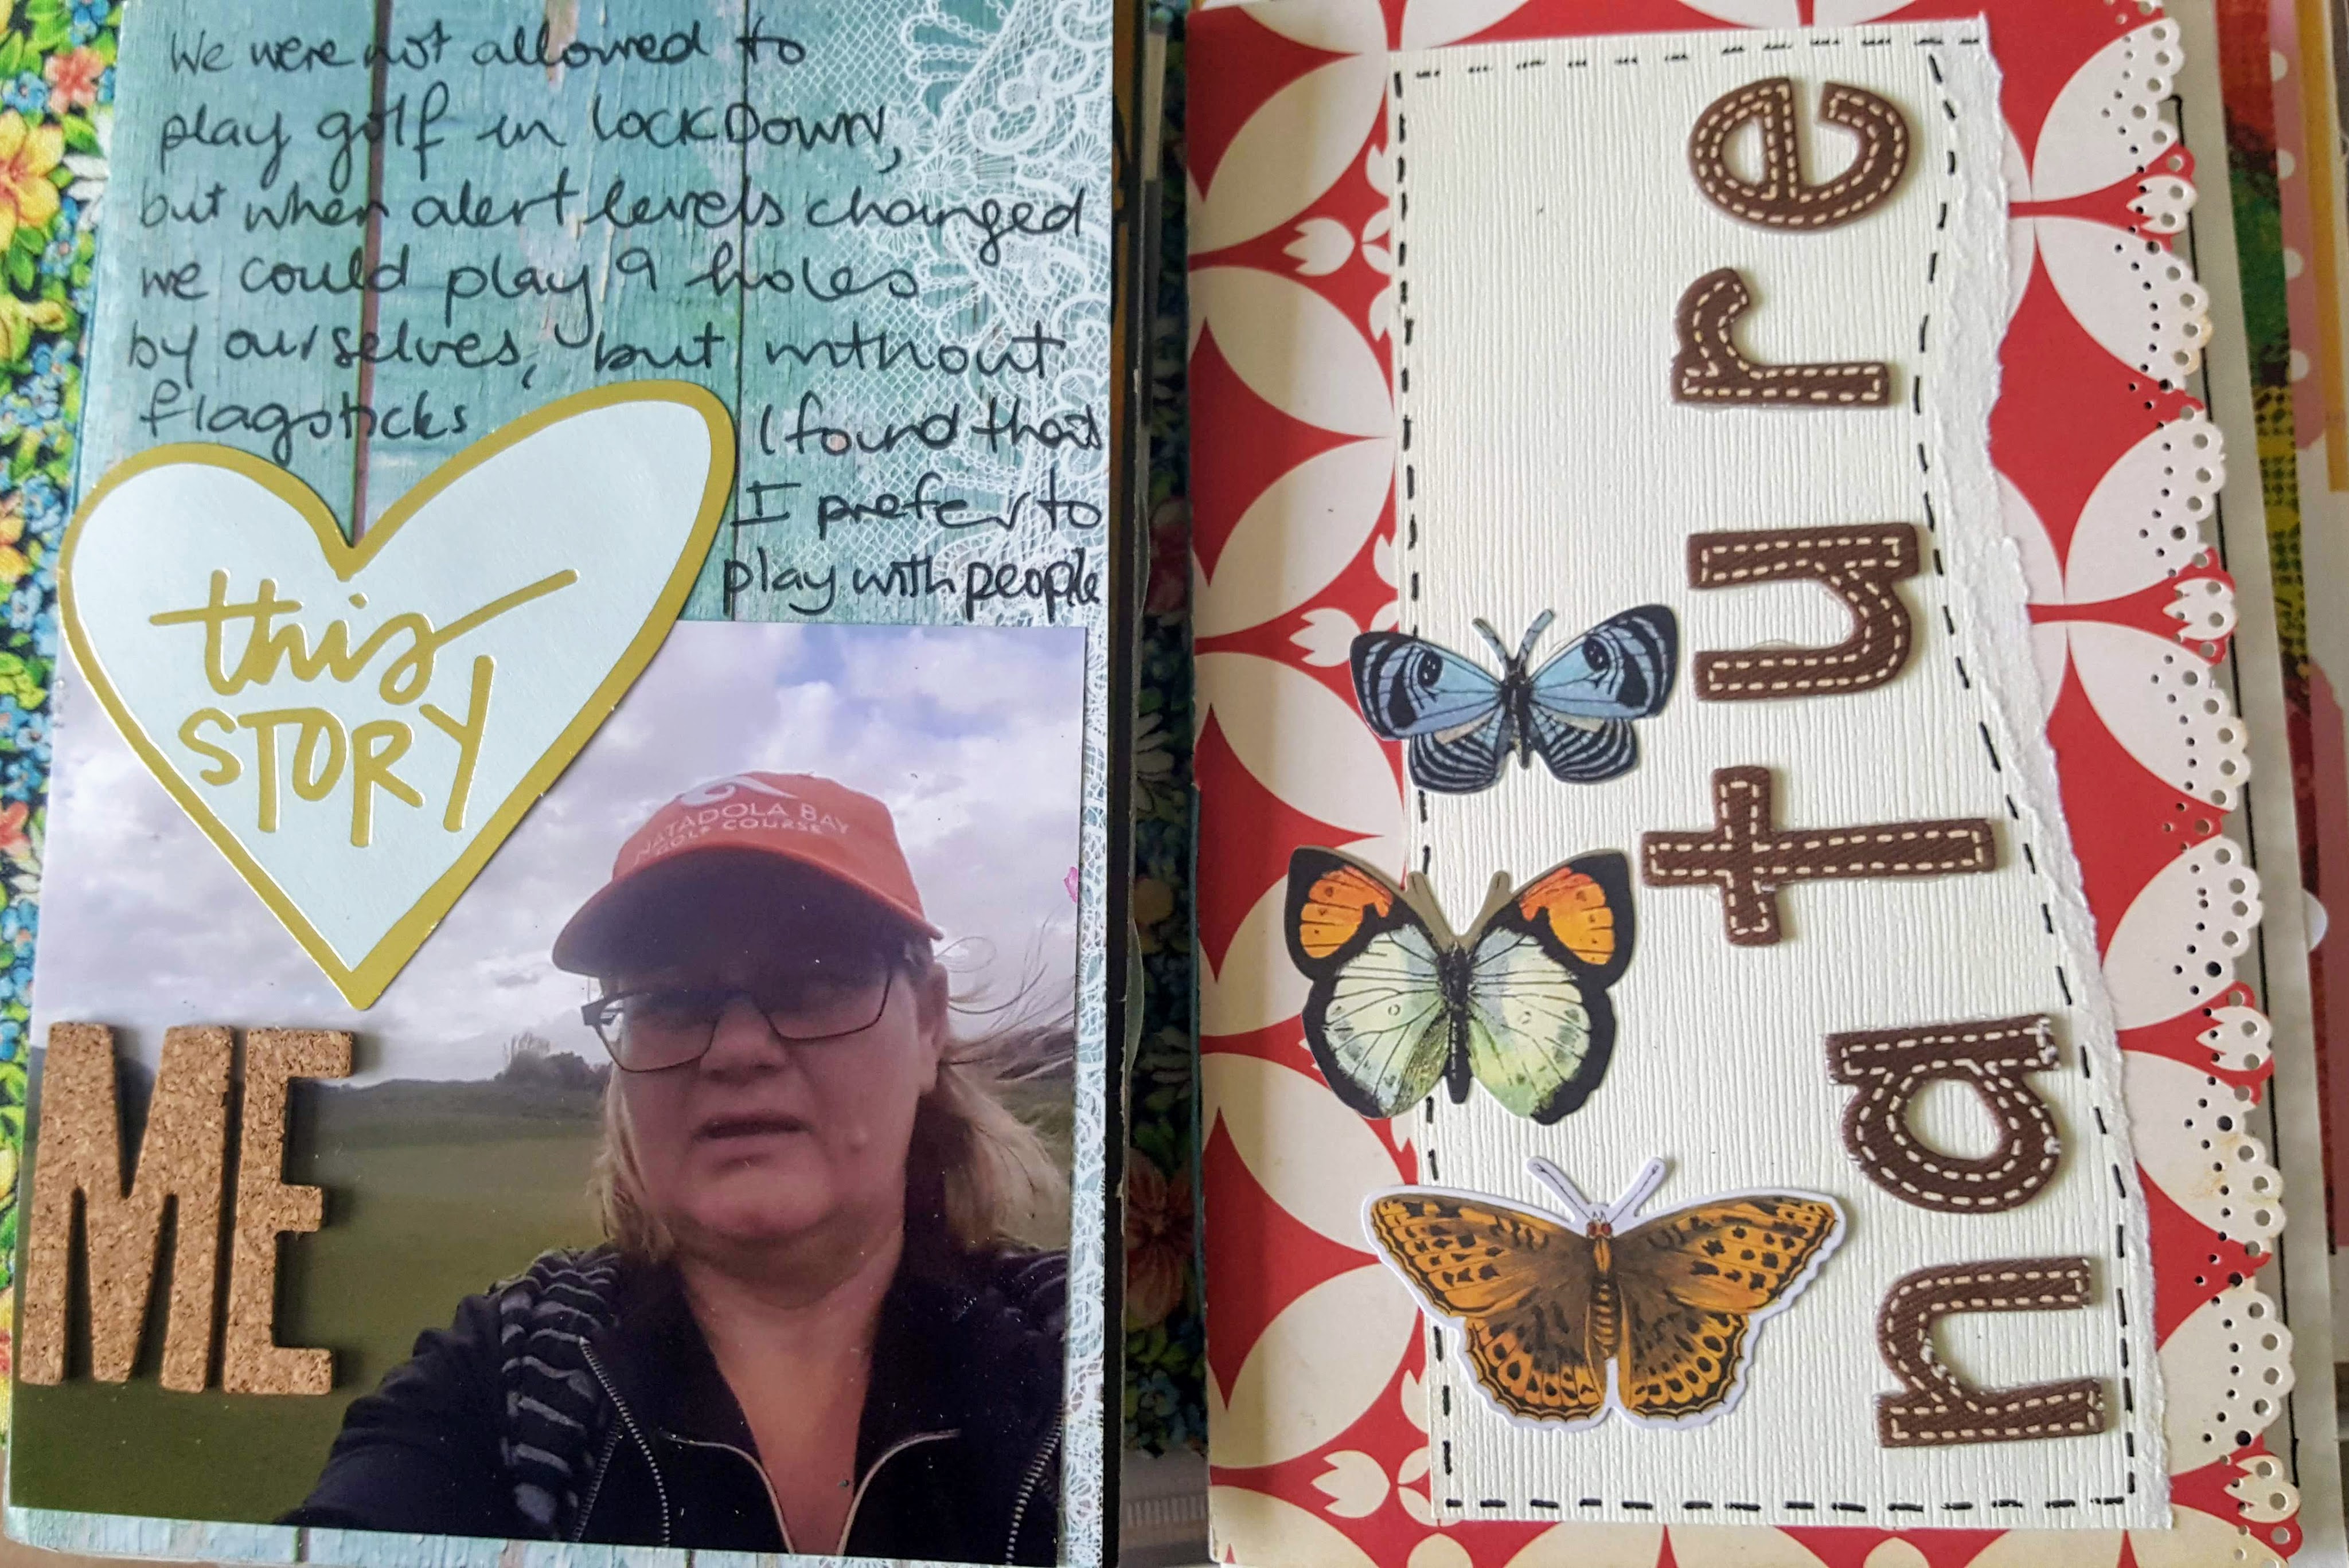 We were not allowed to
play golf in lockDown,
but when alert levels changed
we could play 9 holes
by ourselves, but without
flagsticks
I found that
I prefer to
play with people
this
STORY
NATADOLA BAY
GOLF COURSE
ME
nature